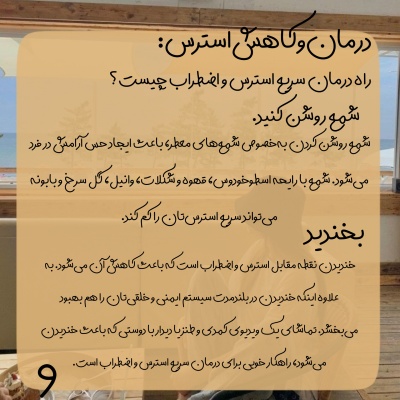 درمان و کاهش استرس:
راه درمان سریع استرس و اضطراب چیست؟
شمع روشن کنید.
شمع روشن کردن به‌خصوص شمع‌های معطر، باعث ایجاد حس آرامش در فرد
می‌شود. شمع با رایحه اسطوخودوس، قهوه و شکلات، وانیل، گل سرخ و بابونه
می‌تواند سریع استرس‌تان را کم کند.
بخندید
خندیدن نقطه مقابل استرس و اضطراب است که باعث کاهش آن می‌شود. به
علاوه اینکه خندیدن در بلندمدت سیستم ایمنی و خلقی‌تان را هم بهبود
می‌بخشد. تماشای یک ویدیوی کمدی و طنز یا دیدار با دوستی که باعث خندیدن
می‌شود، راهکار خوبی برای درمان سریع استرس و اضطراب است.
و